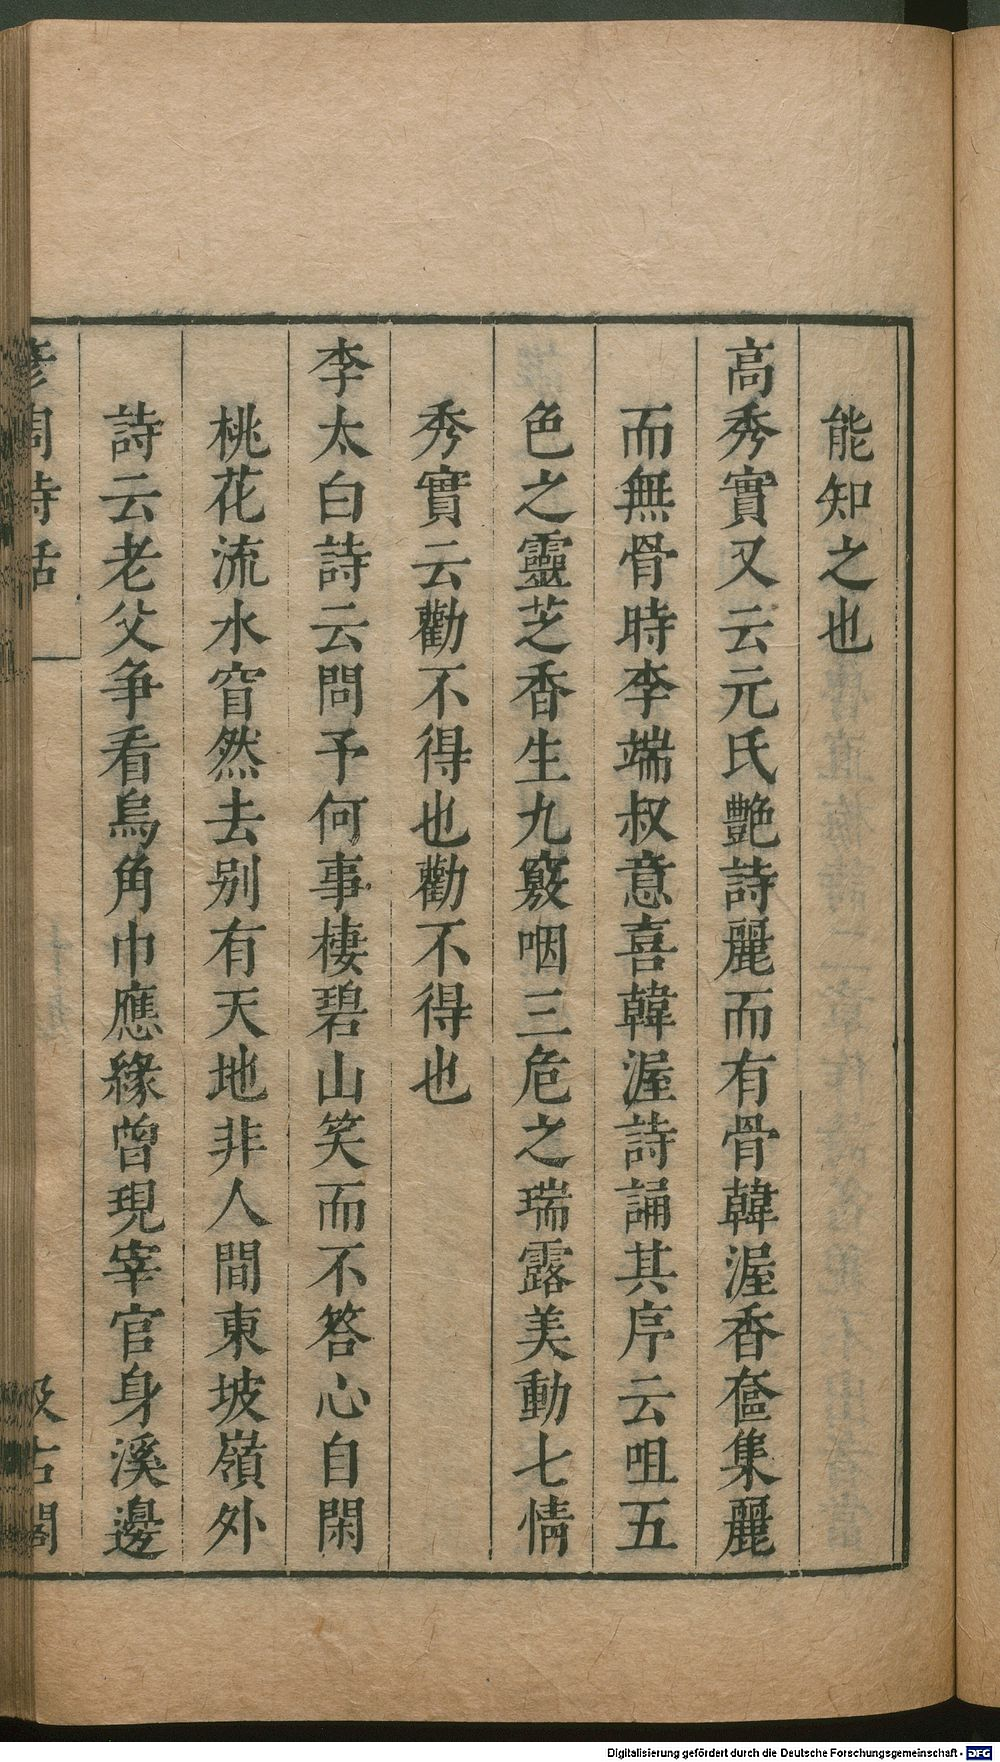 能知之也
高秀實又云元氏艷詩麗而有骨韓渥香奩集麗
而無骨時李端叔意喜韓渥詩誦其序云咀五
色之靈芝香生九竅咽三危之瑞露美動七情
秀實云勸不得也勸不得也
李太白詩云問予何事棲碧山笑而不答心自閑
桃花流水窅然去别有天地非人間東坡嶺外
詩云老父争看烏角巾應緣曾現宰官身溪邊
彦周詩話 汲古閣
Digitalisierung gefördert durch die Deutsche Forschungsgemeinschaft - DFG